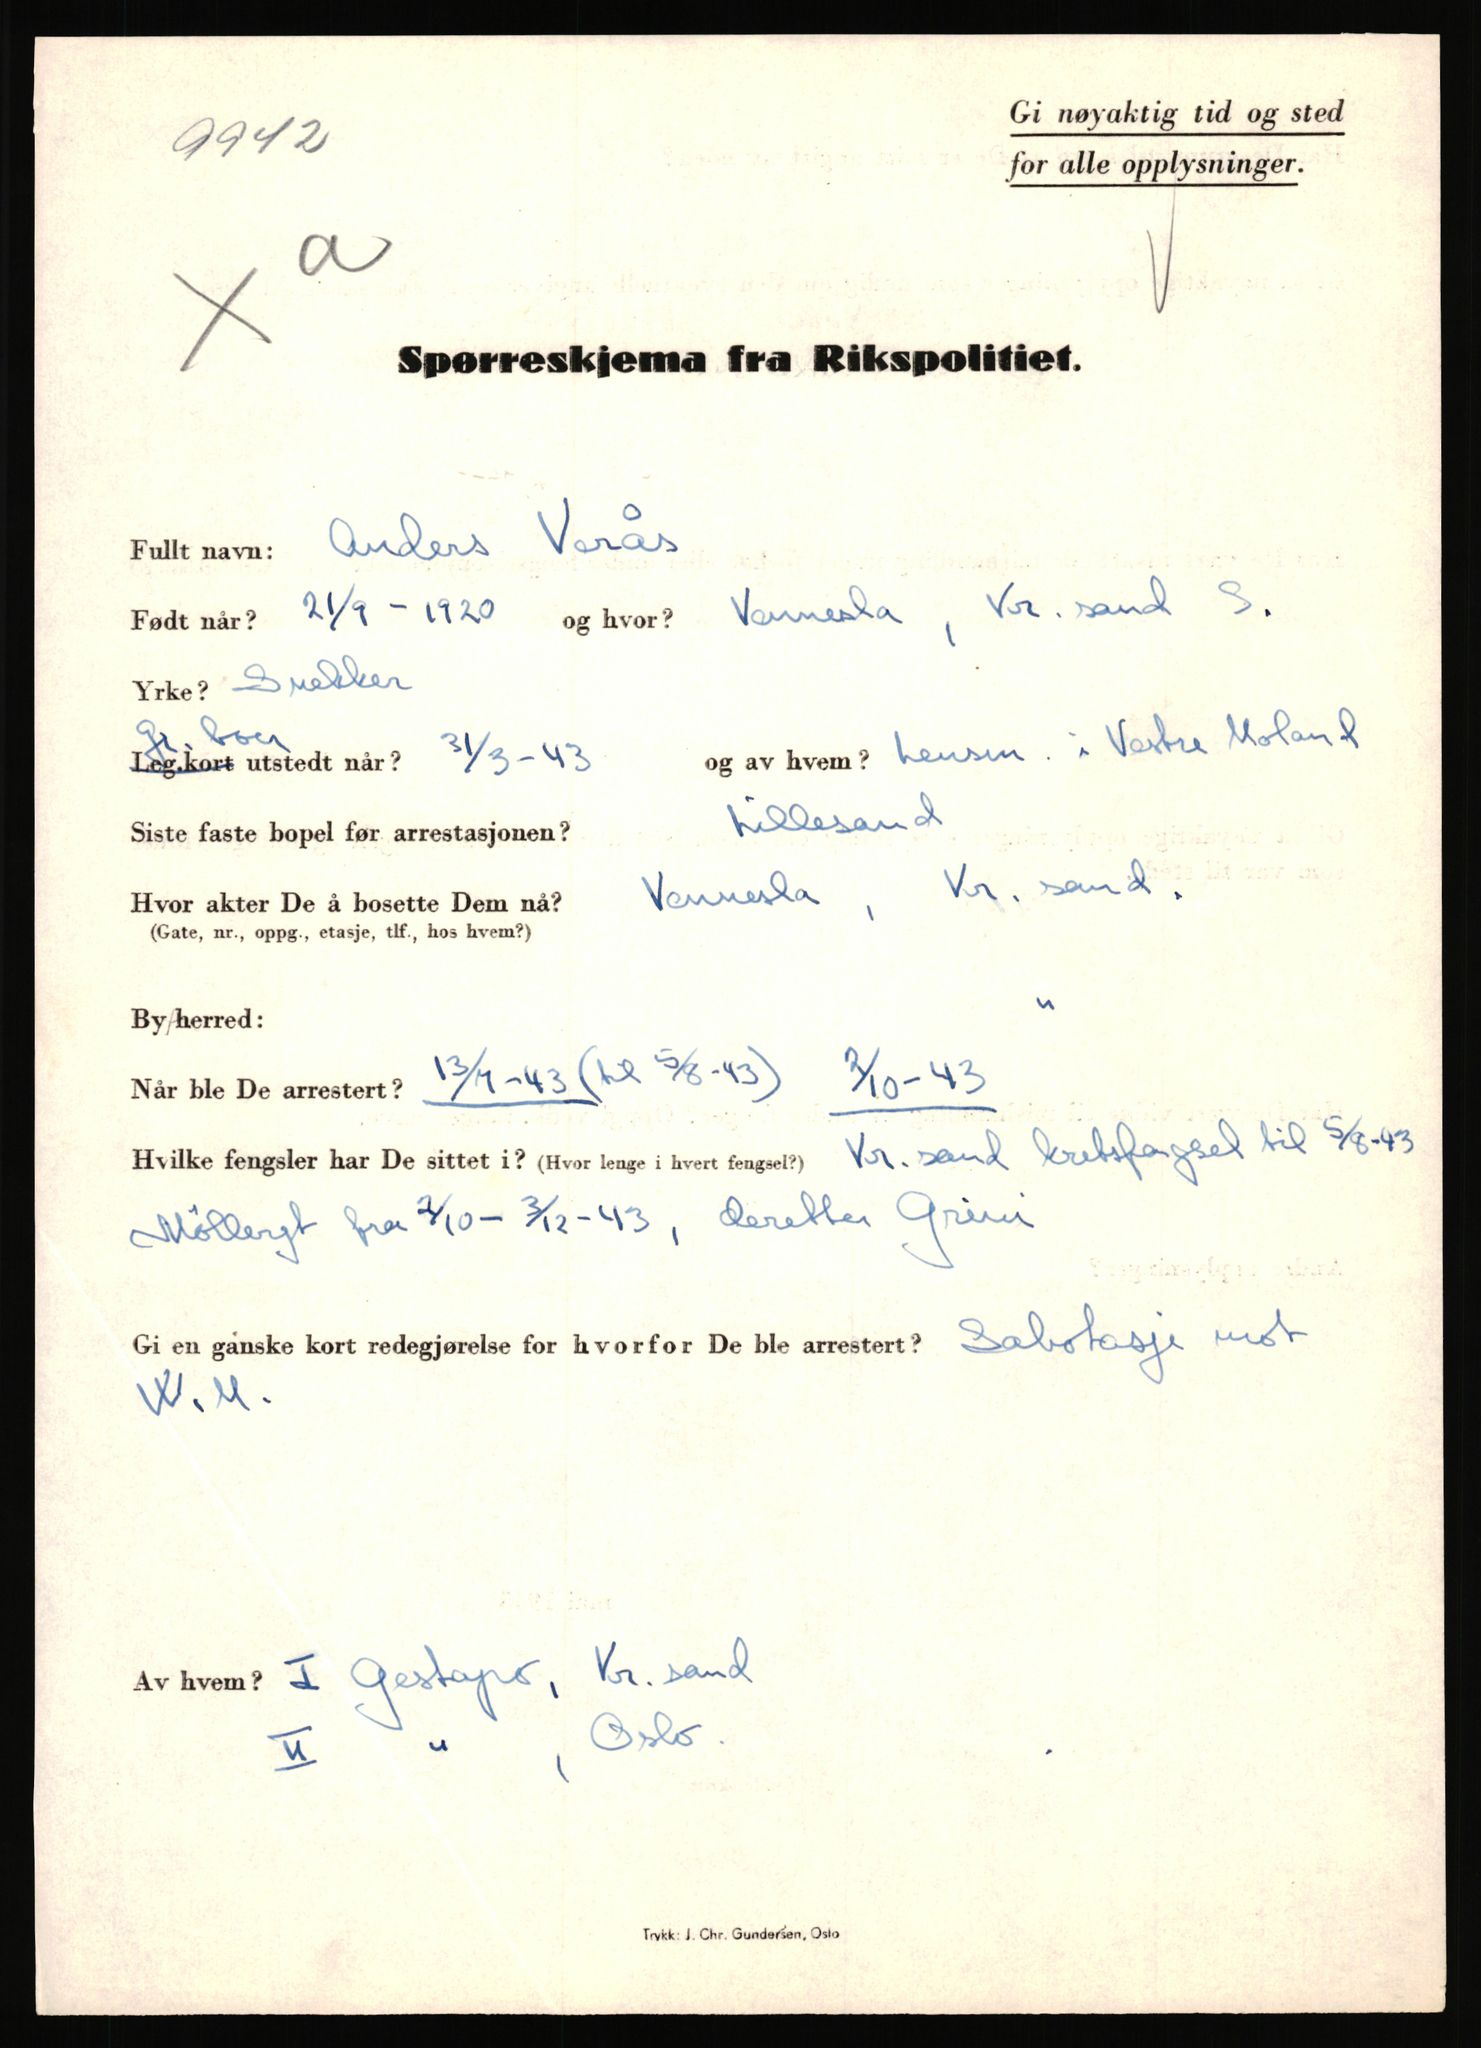 9942
Gi nøyaktig tid og sted
for alle opplysninger.
X a
Spørreskjema fra Rikspolitiet.
Fullt navn: Anders Verås
Født når? 21/9 - 1920 og hvor? Vennesla, Kr. sand S.
Yrke? Snekker
gr. boer
Leg.kort utstedt når? 31/3-43 og av hvem? Lensm. i Vestre Moland
Siste faste bopel før arrestasjonen? Lillesand
Hvor akter De å bosette Dem nå? Vennesla, Kr. sand.
(Gate, nr., oppg., etasje, tlf., hos hvem?)
By/herred: "
Når ble De arrestert? 13/7-43 (til 5/8-43) 2/10-43
Hvilke fengsler har De sittet i? (Hvor lenge i hvert fengsel?) Kr. sand kretsfengsel til 5/8-43
Möllergt fra 2/10 - 3/12-43, deretter Grini
Gi en ganske kort redegjørelse for hvorfor De ble arrestert? Sabotasje mot
W.M.
Av hvem? I Gestapo, Kr. sand
II " , Oslo.
Trykk: J. Chr. Gundersen, Oslo